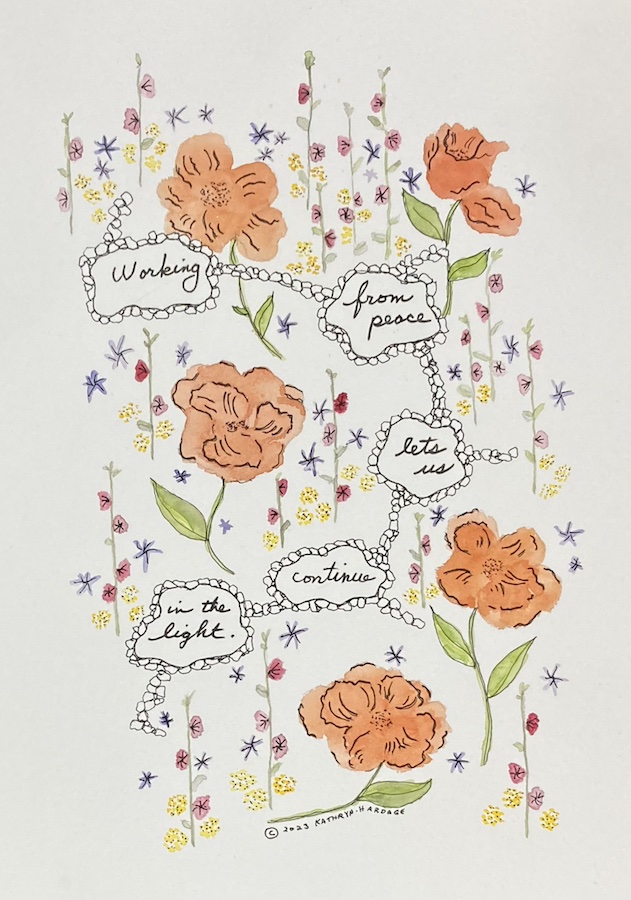 Working
from
peace
lets
us
continue
in the
light.
© 2023 KATHRYN HARDAGE